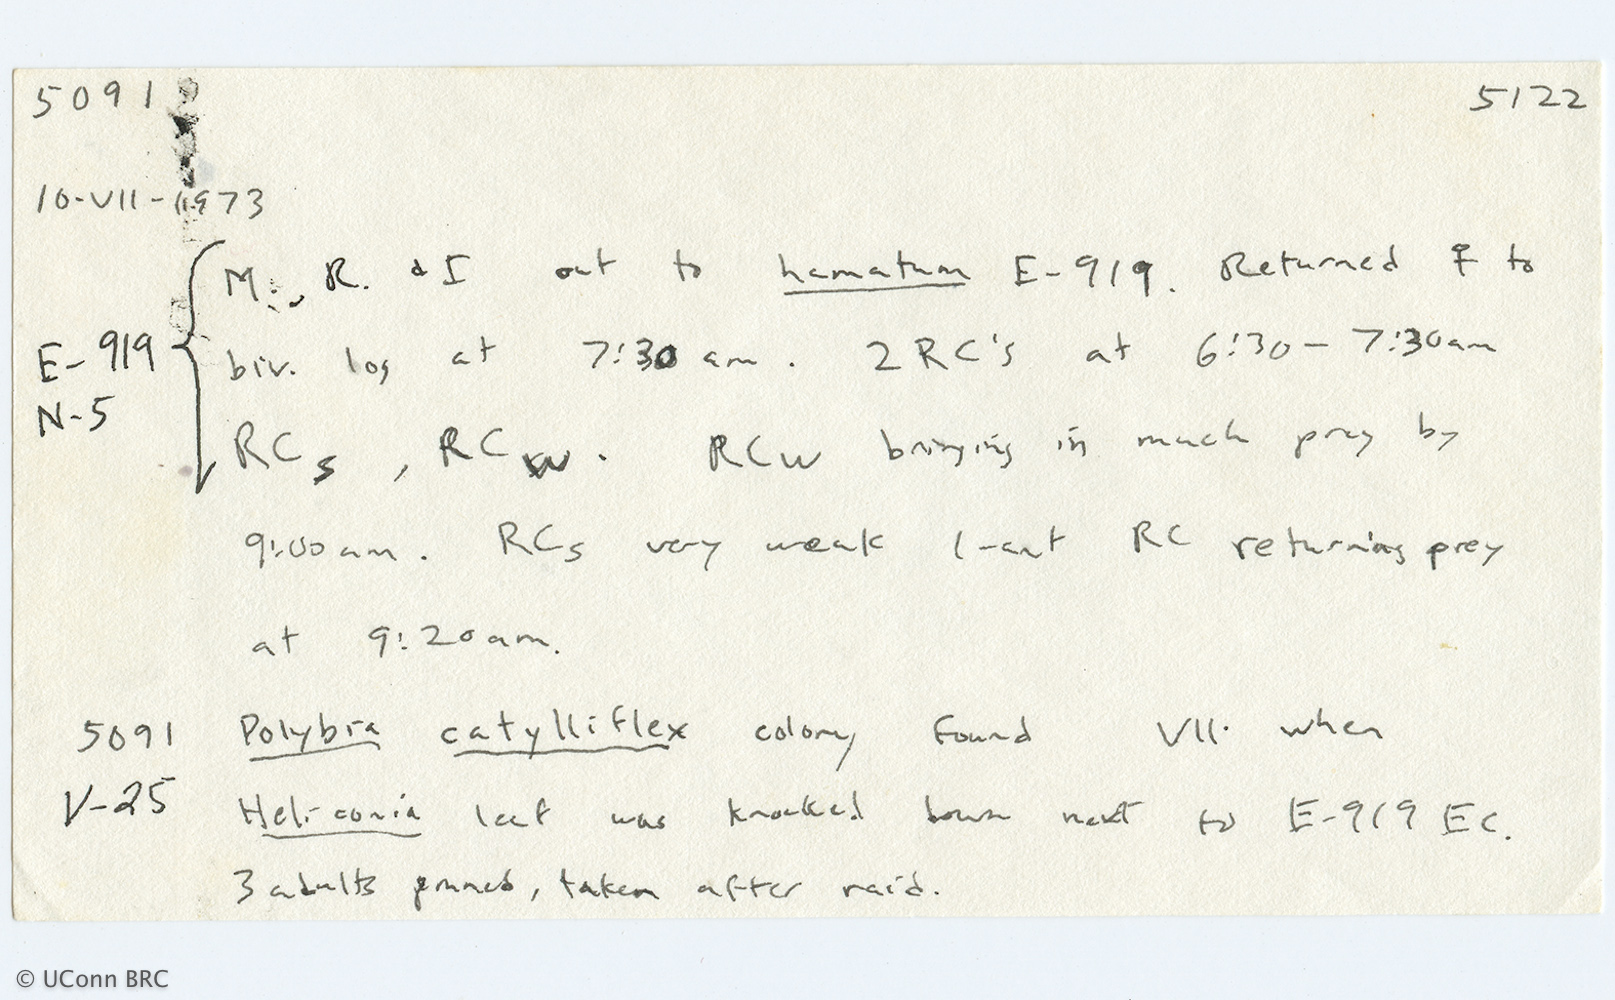 5091 5122
10-VII-1973
M., R. & I out to hamatum E-919. Returned ♀ to
E-919 biv. log at 7:30 am. 2 RC's at 6:30 - 7:30am
N-5 RCs, RCw. RCW bringing in much prey by
9:00 am. RCs very weak 1-ant RC returning prey
at 9:20 am.
5091 Polybia catylliflex colony found VII. when
V-25 Heliconia leaf was knocked down next to E-919 EC.
3 adults pinned, taken after raid.
© UConn BRC